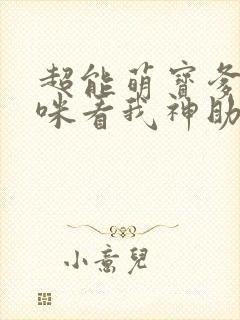 超能萌寶爹
咪看我神助
小意兒